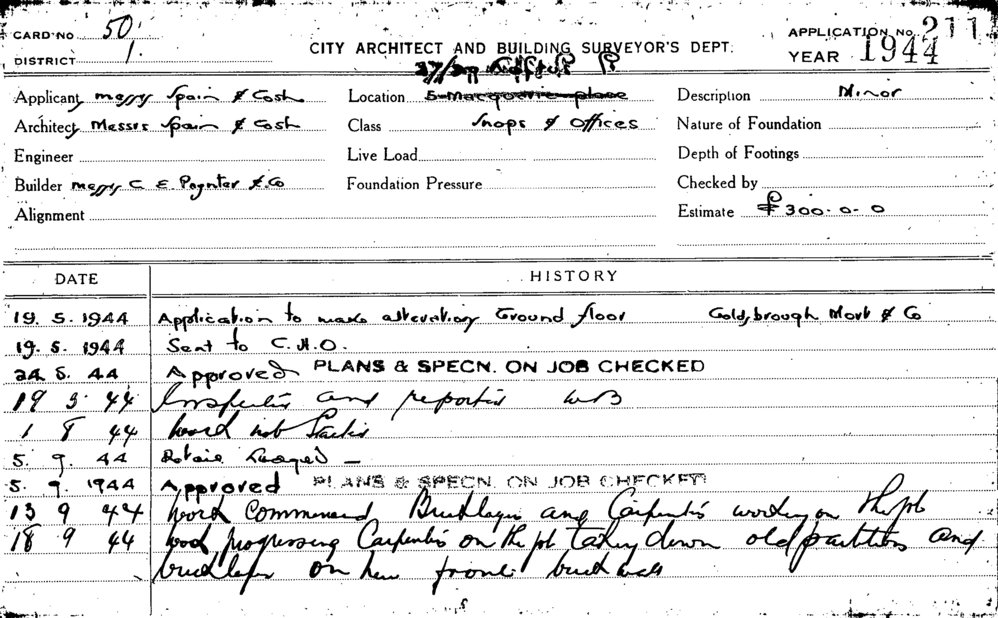 CARD NO 50
DISTRICT 1.
CITY ARCHITECT AND BUILDING SURVEYOR'S DEPT.
APPLICATION No. 211
YEAR 1944
37/39
Applicant Messrs Spain & Cosh
Location 5 Macquarie place
Description Minor
Architect Messrs Spain & Cosh
Class Shops & Offices
Nature of Foundation
Engineer
Live Load
Depth of Footings
Builder Messrs C E Poynter & Co
Foundation Pressure
Checked by
Alignment
Estimate £300-0-0
DATE HISTORY
19. 5. 1944 Application to make alterations Ground floor Goldsbrough Mort & Co
19. 5. 1944 Sent to C.H.O.
24 5. 44 Approved PLANS & SPECN. ON JOB CHECKED
19 5 44 Inspected and reported WB
1 8 44 Work not Started
5. 9. 44
5. 9. 1944 Approved PLANS & SPECN. ON JOB CHECKED
13 9 44 Work Commenced Bricklayer and Carpenters working on the job
18 9 44 Work progressing Carpenters on the job taking down old partitions and
bricklayer on new front brick wall